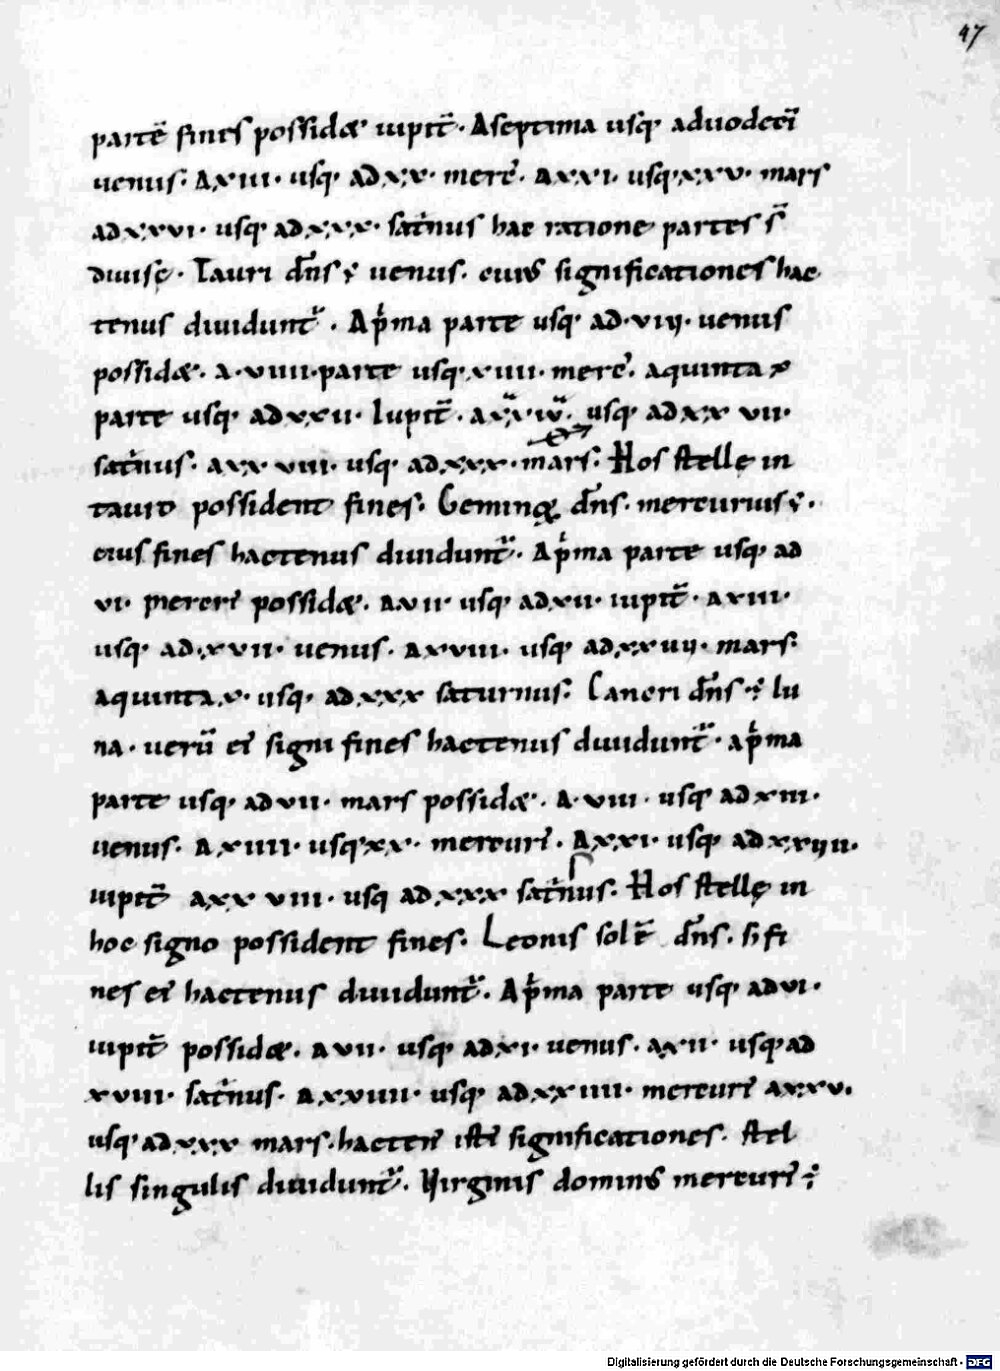 47
partē fines possidæ iupit̄. A septima usq; ad uodecī
uenus. A xiii. usq; ad xx. merc̄. a xxi. usq; xxv. mars
ad xxvi. usq; ad xxx. sat̄nus hac ratione partes s̄
diuisę. Tauri dn̄s ÷ uenus. cuius significationes hac
tenus diuidunt̄. A p̄ma parte usq; ad. viij. uenus
possidæ. a. viiii. parte usq; xiiii. merc̄. a quinta x
parte usq; ad xxii. Iupit̄. a xx. iii. usq; ad xx vii.
sat̄nus. a xx viii. usq; ad xxx. mars. Hos stellę in
tauro possident fines. Geminoꝝ dn̄s. mercurius ÷.
eius fines hactenus diuidunt̄. A p̄ma parte usq; ad
vi. mercuri possidæ. a vii usq; ad xii. iupit̄. a xiii.
usq; ad. xvii. uenus. a xviii. usq; ad xx iiij. mars.
a quinta. x. usq; ad xxx saturnus. Cancri dn̄s ÷ lu
na. uerū ei signi fines hactenus diuidunt̄. a p̄ma
parte usq; ad vii. mars possidæ. A. viii. usq; ad xiii.
uenus. A xiiii. usq; xx. mercuri. A xxi. usq; ad xxvii.
iupit̄ a xx viii. usq; ad xxx sat̄nus. Hos stellę in
hoc signo possident fines. Leonis solē dn̄s. s; fi
nes ei hactenus diuidunt̄. A p̄ma parte usq; ad vi.
iupit̄ possidæ. a vii. usq; ad xi. uenus. a xii. usq; ad
xviii. sat̄nus. a xviiii. usq; ad xx iiii. mercuri a xxv.
usq; ad xxx mars. hacten̄ istę significationes. stel
lis singulis diuidunt̄. Virginis dominus mercuri ÷
Digitalisierung gefördert durch die Deutsche Forschungsgemeinschaft - DFG